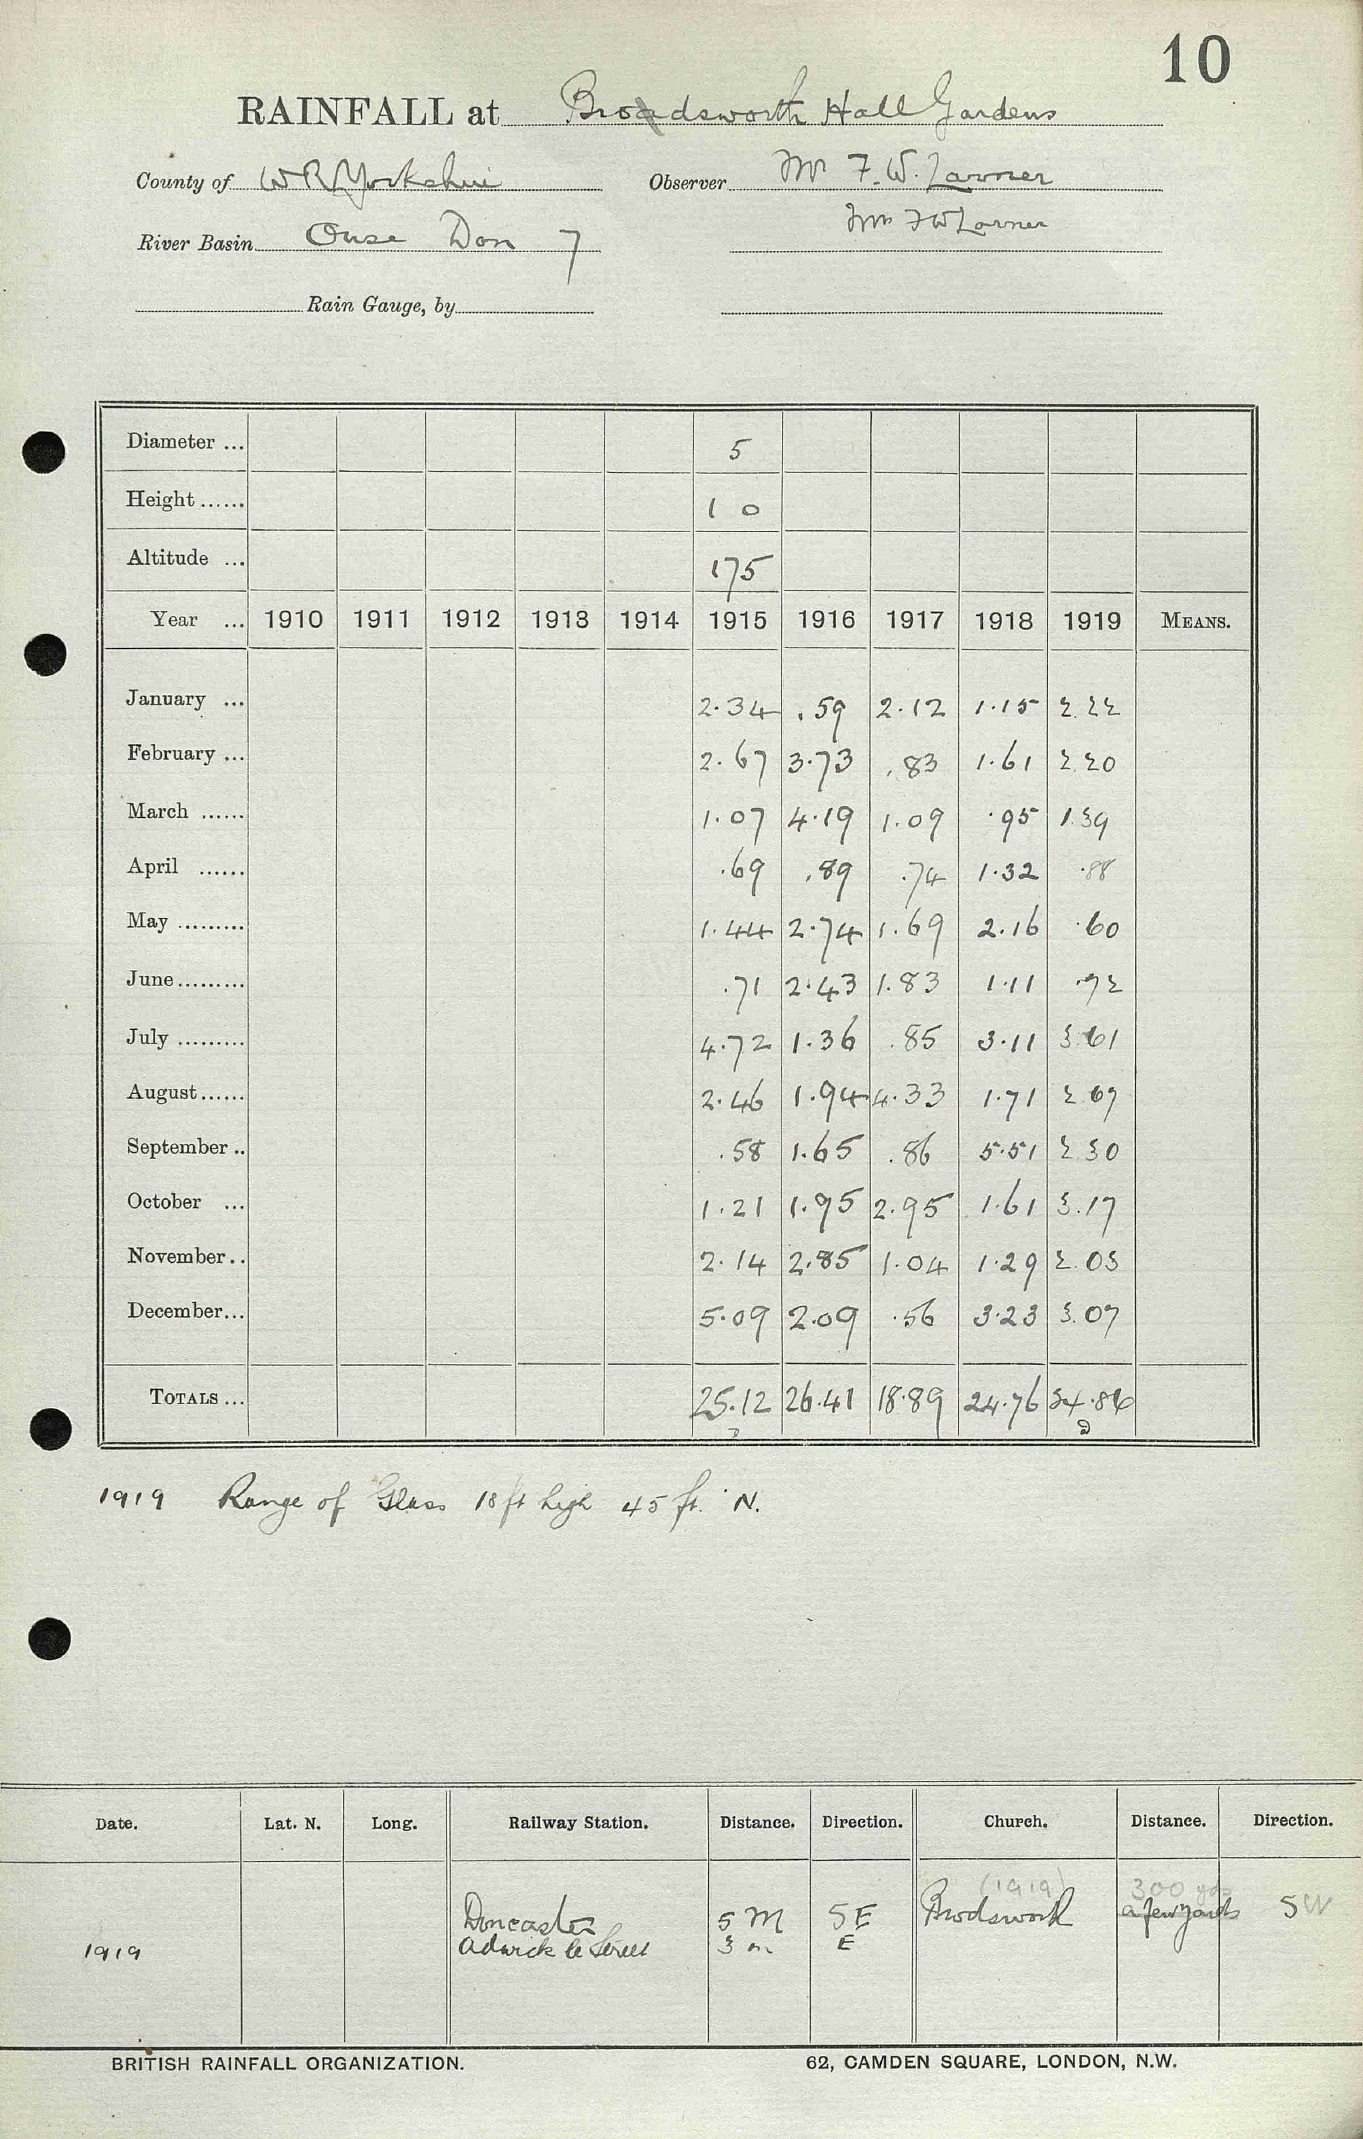 10
RAINFALL at Brodsworth Hall Gardens
County of W R Yorkshire Observer Mr F. W. Larner
River Basin Ouse Don 7 Mr F W Larner
Rain Gauge, by
Diameter ... 5
Height ...... 1 0
Altitude ... 175
Year ... 1910 1911 1912 1913 1914 1915 1916 1917 1918 1919 MEANS.
January ... 2.34 .59 2.12 1.15 2.22
February ... 2.67 3.73 .83 1.61 2.20
March ...... 1.07 4.19 1.09 .95 1.39
April ...... .69 .89 .74 1.32 .88
May ......... 1.44 2.74 1.69 2.16 .60
June ......... .71 2.43 1.83 1.11 .72
July ......... 4.72 1.36 .85 3.11 3.61
August ...... 2.46 1.94 4.33 1.71 2.67
September .. .58 1.65 .86 5.51 2.30
October ... 1.21 1.95 2.95 1.61 3.17
November .. 2.14 2.85 1.04 1.29 2.03
December ... 5.09 2.09 .56 3.23 3.07
TOTALS ... 25.12 26.41 18.89 24.76 24.86
1919 Range of Glass 18 ft high 45 ft. N.
Date. Lat. N. Long. Railway Station. Distance. Direction. Church. Distance. Direction.
(1919) 300 yds
Doncaster 5 M SE Brodsworth a few yards SW
1919 Adwick le Street 3 m E
BRITISH RAINFALL ORGANIZATION. 62, CAMDEN SQUARE, LONDON, N.W.